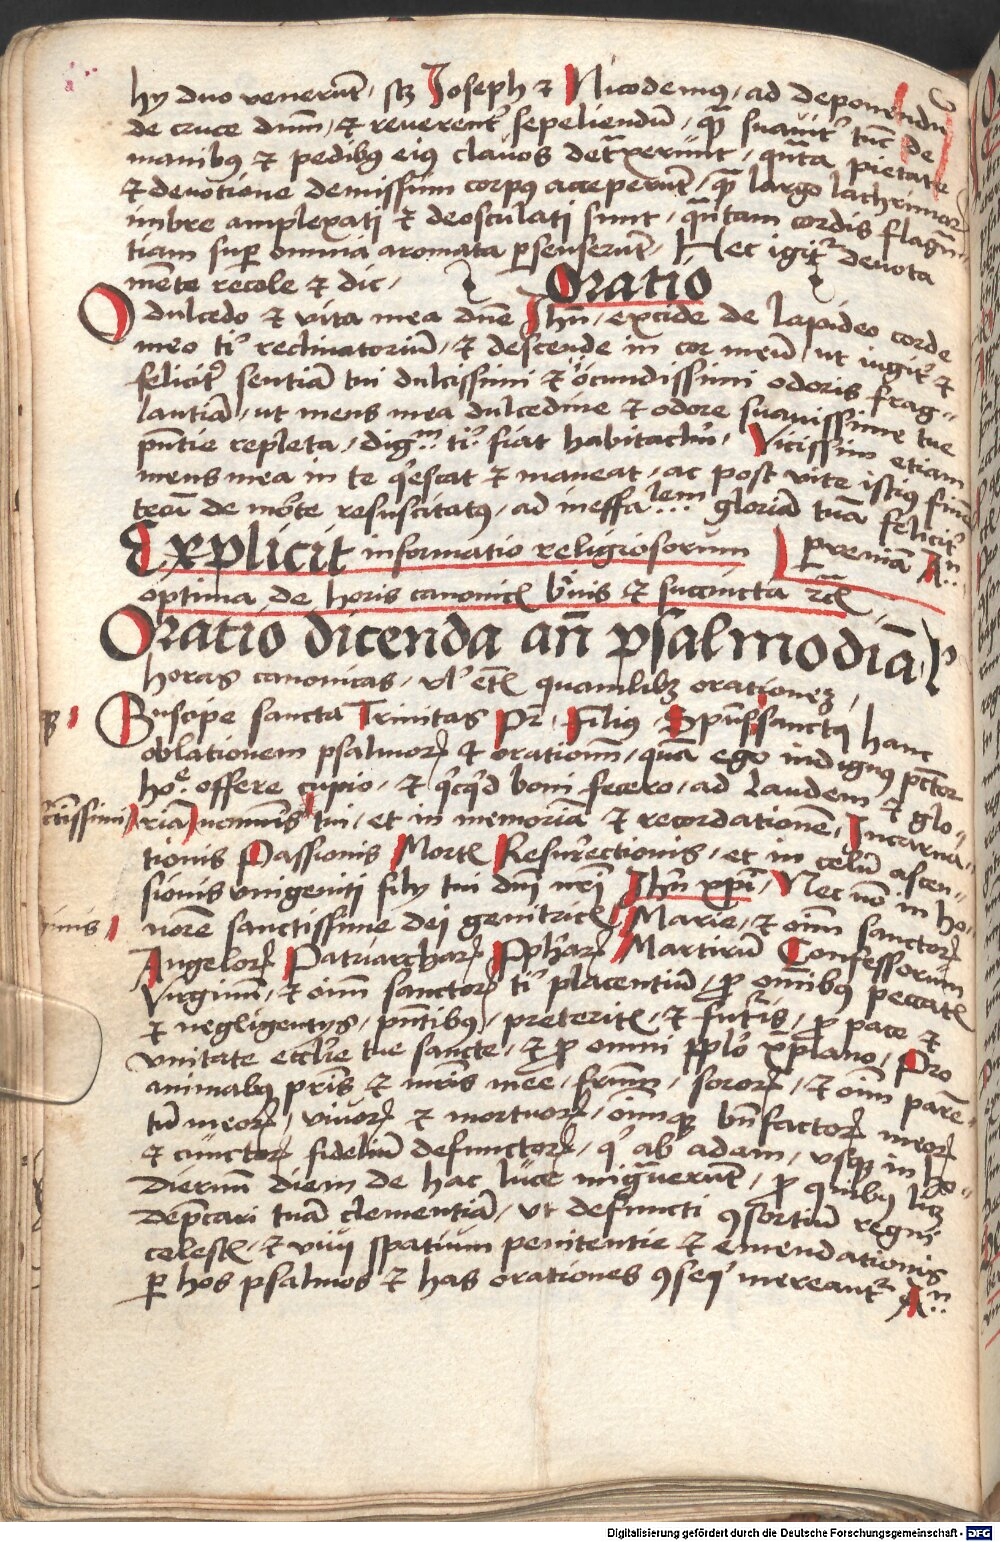 hy duo venerūt, scz Joseph et Nicodemus, ad deponendū
de cruce dnm̄, et reverenter sepeliendū, qm̄ suaviter tūc de
manibus et pedibus eius clavos detraxerūnt, quāta pietate
et devotione demissum corpus acceperūt, qm̄ largo lachrimarꝝ
imbre amplexati et deosculati sunt, quātam cordis flagrā-
tiam super omnia aromata persenserūt, Hec igitur devota
mēte recole et dic,
Oratio
O dulcedo et vita mea dn̄e Jhū, excide de lapideo corde
meo tibi reclinatoriū, et descende in cor meū, ut iugiter et
feliciter sentiā tui dulcissimi et iocundissimi odoris frag-
lantiā, ut mens mea dulcedine et odore suavissime tue
pn̄tie repleta, dignm̄ tibi fiat habitaclū, Vicissim etiam
mens mea in te q̄escat et maneat, ac post vite istius finē
de mōte resuscitatus, ad ineffabilem gloriā tuā feliciter
perveniā Amen
Explicit informatio religiosorum
optima de horis canonicis brevis et succincta
Oratio dicenda an̄ psalmodiā,
horas canonicas, vl' etiā quamlibz orationez,
Suscipe sancta Trinitas Pr̄, Filius, Spūssanctus hanc
oblationem psalmorꝝ et orationum, quā ego indignus pctor
hodie offere cupio, et q̄cq̄d boni fecero, ad laudem et glo-
sctissimi riā nominis tui, et in memoriā et recordationē, Incarna-
tionis Passionis Mortis Resurrectionis, et in celū ascen-
sionis unigeniti filij tui dn̄i nr̄i Jhū xpī, Nec nō in ho-
norē sanctissime dei genitricis Marie, et oīm sanctorꝝ
Angelorꝝ Patriarcharꝝ Pphārꝝ Martirū Confessorum
Virginū, et oīm sanctorꝝ tibi placentiū, pro omībus peccatis
et negligentijs, pn̄tibus, preteritis, et futuris, pro pace et
unitate ecclie tue sancte, et pro omni pplo xp̄iano, Pro
animabus pr̄is et mr̄is mee, frm̄, sororꝝ, et oīm paren-
tū meorꝝ, vivorꝝ et mortuorꝝ, oīmqꝫ bn̄factorꝝ meorꝝ
et cūnctorꝝ fideliū defunctorꝝ, q' ab adam, usqꝫ in ho-
diernū diem de hac luce migraverūt, pro quibus licz
dep̄cari tuā clementiā, Ut defuncti ꝯsortiū regni
celestis, et vivi spatium penitentie et emendationis
per hos psalmos et has orationes ꝯseq' mereantur Amen
Digitalisierung gefördert durch die Deutsche Forschungsgemeinschaft - DFG